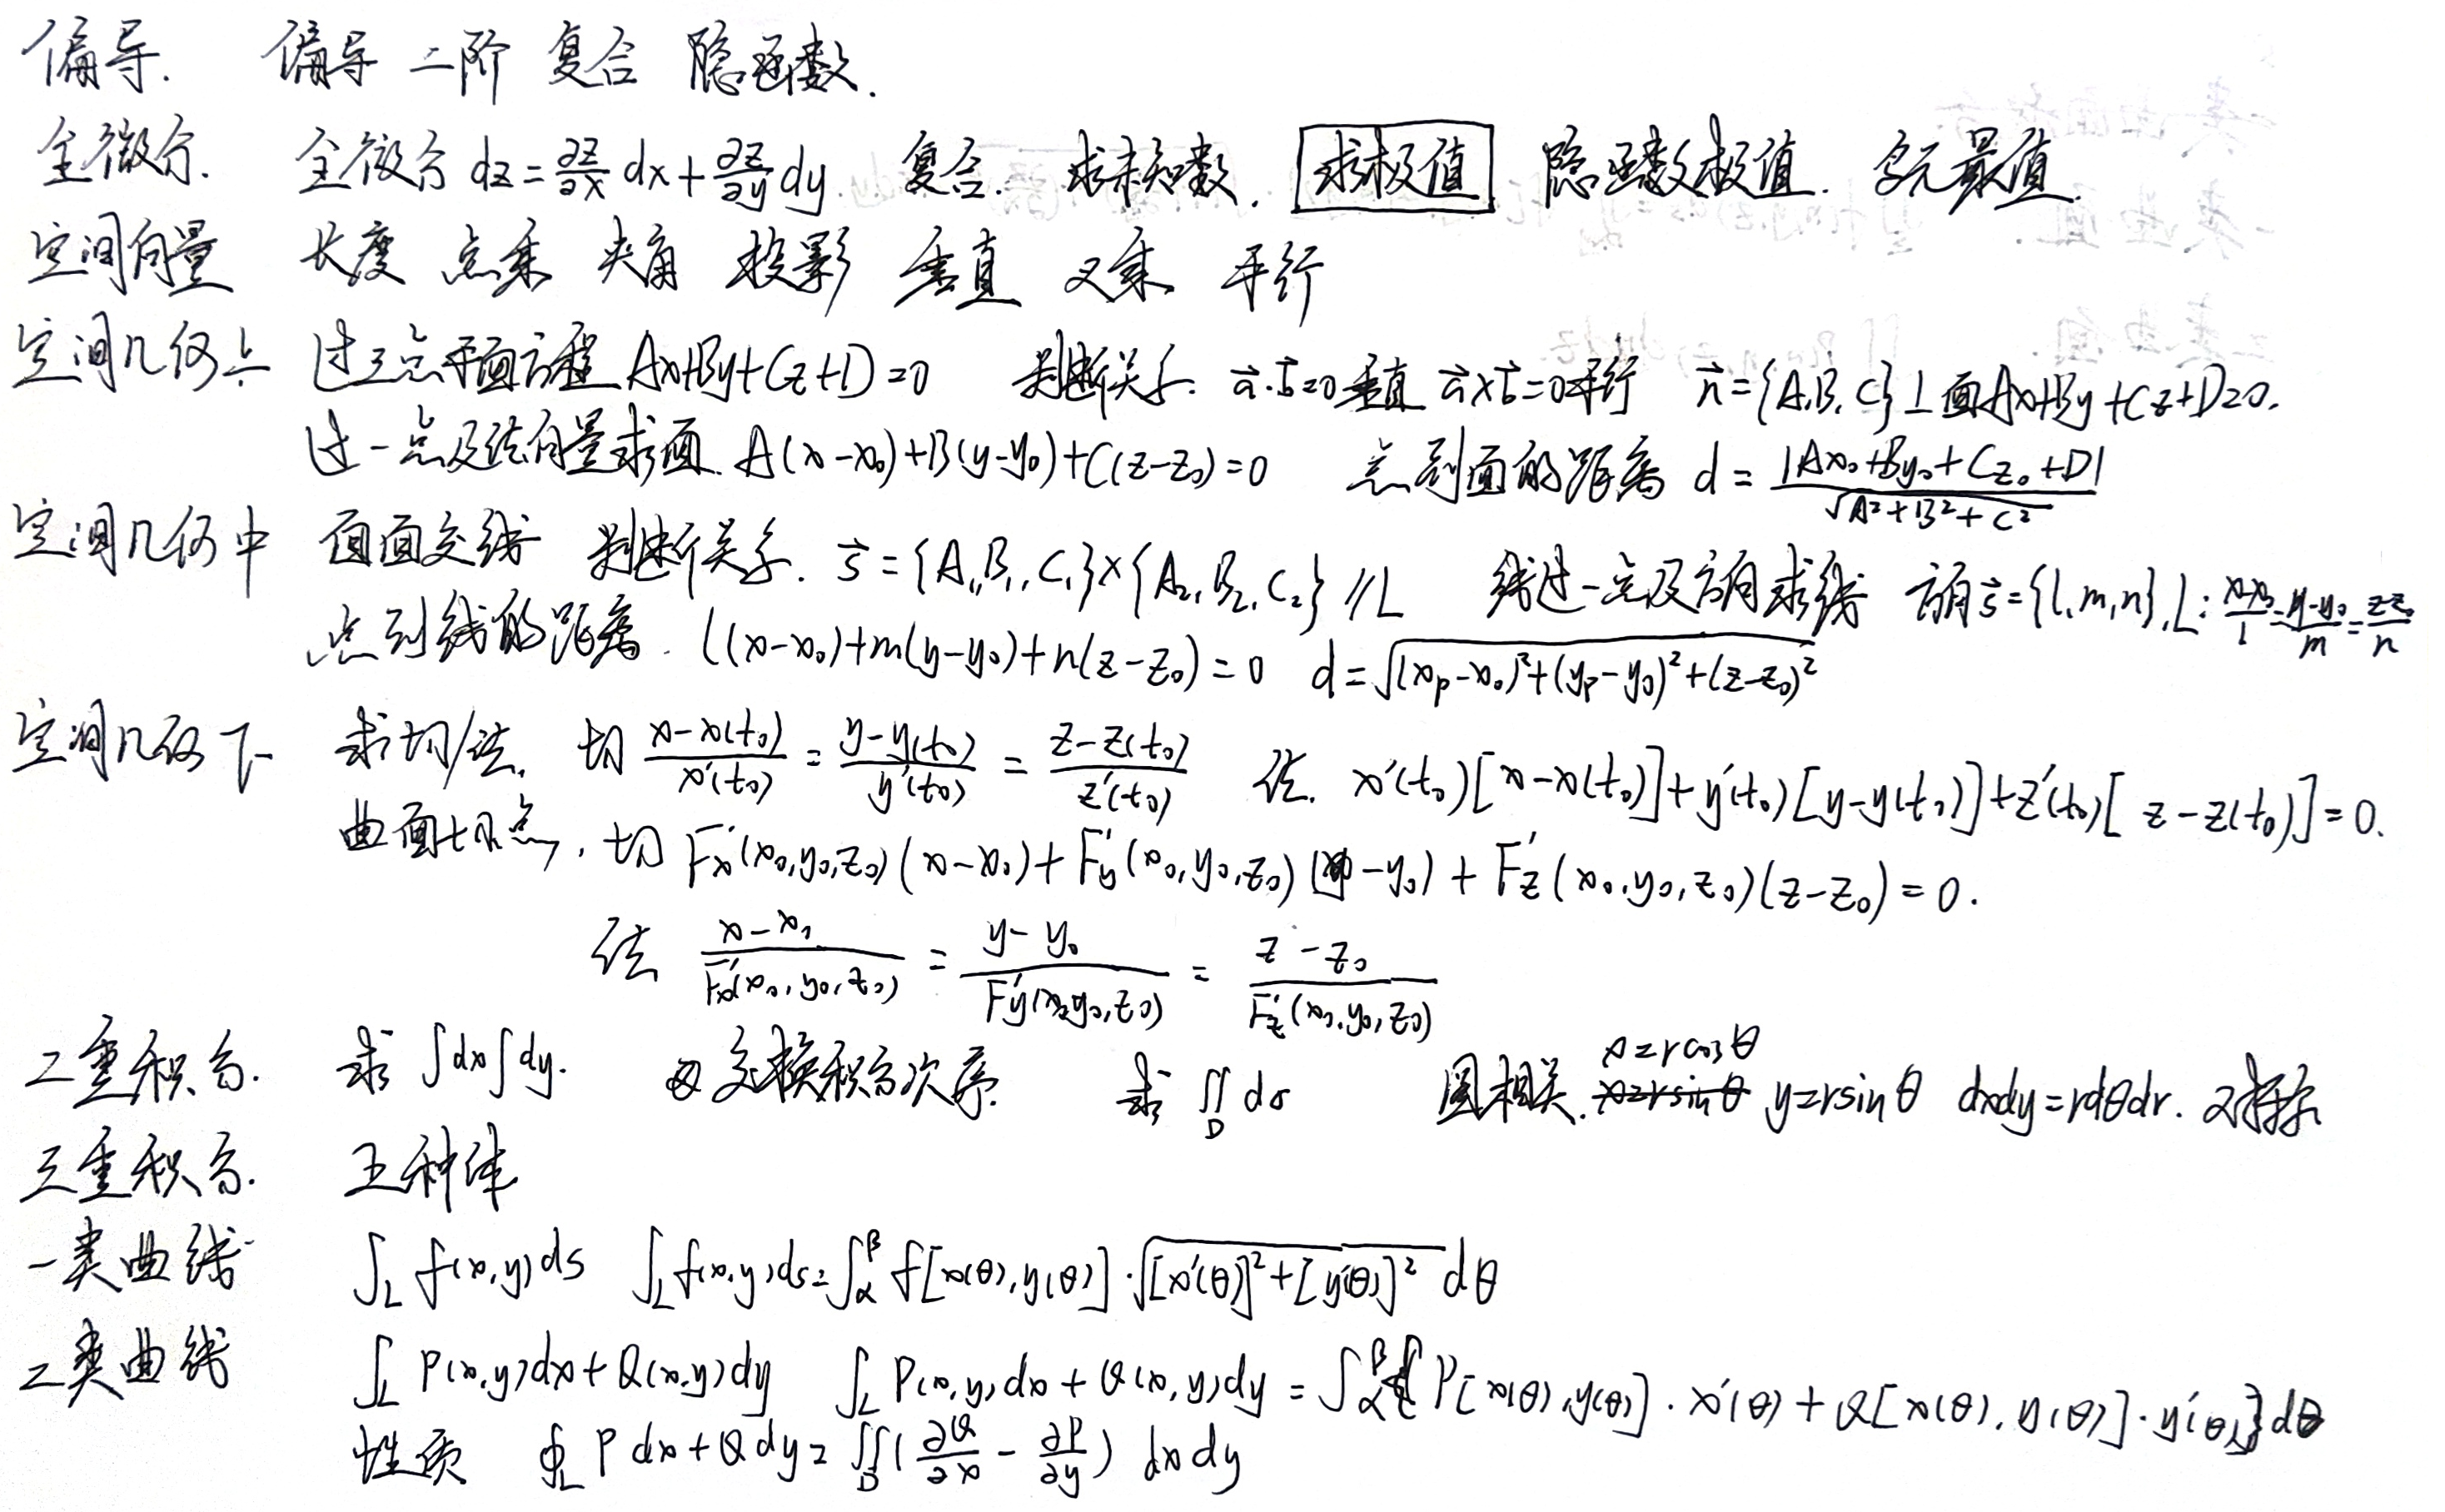 偏导. 偏导 二阶 复合 隐函数.
全微分. 全微分 dz = ∂z/∂x dx + ∂z/∂y dy. 复合. 求未知数. 求极值 隐函数极值. 多元最值.
空间向量 长度 点乘 夹角 投影 垂直 叉乘 平行
空间几何上 过三点平面方程 Ax+By+Cz+D=0 判断关系. a⃗·b⃗=0垂直 a⃗×b⃗=0平行 n⃗={A,B,C}⊥面Ax+By+Cz+D=0.
过一点及法向量求面. A(x-x₀)+B(y-y₀)+C(z-z₀)=0 点到面的距离 d = |Ax₀+By₀+Cz₀+D| / √(A²+B²+C²)
空间几何中 面面交线 判断关系. s⃗={A₁,B₁,C₁}×{A₂,B₂,C₂} //L 线过一点及方向求线 方向s⃗={l,m,n}, L: (x-x₀)/l = (y-y₀)/m = (z-z₀)/n
点到线的距离. l(x-x₀)+m(y-y₀)+n(z-z₀)=0 d=√((x_p-x₀)²+(y_p-y₀)²+(z-z₀)²)
空间几何下 求切/法. 切 (x-x(t₀))/x'(t₀) = (y-y(t₀))/y'(t₀) = (z-z(t₀))/z'(t₀) 法. x'(t₀)[x-x(t₀)]+y'(t₀)[y-y(t₀)]+z'(t₀)[z-z(t₀)]=0.
曲面切点, 切 F'x(x₀,y₀,z₀)(x-x₀)+F'y(x₀,y₀,z₀)(y-y₀)+F'z(x₀,y₀,z₀)(z-z₀)=0.
法 (x-x₀)/F'x(x₀,y₀,z₀) = (y-y₀)/F'y(x₀,y₀,z₀) = (z-z₀)/F'z(x₀,y₀,z₀)
二重积分. 求 ∫dx∫dy. 交换积分次序. 求 ∬_D dσ 圆相关. x=rcosθ x=rsinθ y=rsinθ dxdy=rdθdr.
三重积分. 五种体
一类曲线 ∫_L f(x,y)ds ∫_L f(x,y)ds=∫_α^β f[x(θ),y(θ)]·√([x'(θ)]²+[y'(θ)]²) dθ
二类曲线 ∫_L P(x,y)dx+Q(x,y)dy ∫_L P(x,y)dx+Q(x,y)dy = ∫_α^β {P[x(θ),y(θ)]·x'(θ)+Q[x(θ),y(θ)]·y'(θ)}dθ
性质 ∮_L P dx+Q dy = ∬_D (∂Q/∂x - ∂P/∂y) dxdy